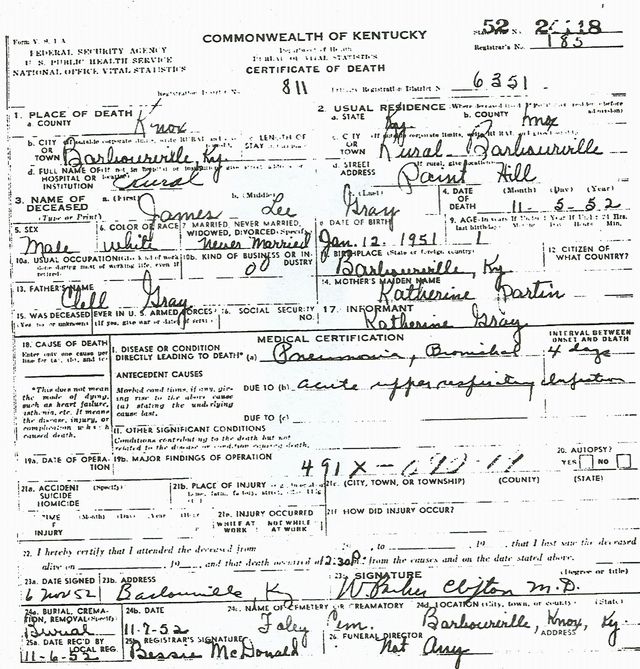 COMMONWEALTH OF KENTUCKY
Form V. S. 1 A
FEDERAL SECURITY AGENCY
U. S. PUBLIC HEALTH SERVICE
NATIONAL OFFICE VITAL STATISTICS
Department of Health
BUREAU OF VITAL STATISTICS
CERTIFICATE OF DEATH
52
Registrar's No. 185
Registration District No. 811
Registration District N 6351
1. PLACE OF DEATH
a COUNTY Knox
2. USUAL RESIDENCE
a. STATE Ky
b. COUNTY Knox
b. CITY OR TOWN Barbourville, Ky.
LENGTH OF STAY
c. CITY OR TOWN Rural - Barbourville
d. FULL NAME OF HOSPITAL OR INSTITUTION Rural
d. STREET ADDRESS Paint Hill
3. NAME OF DECEASED (Type or Print)
a. (First) James
b. (Middle) Lee
c. (Last) Gray
4. DATE OF DEATH (Month) (Day) (Year)
11-5-52
5. SEX Male
6. COLOR OR RACE White
7. MARRIED, NEVER MARRIED, WIDOWED, DIVORCED (Specify) Never Married
8 DATE OF BIRTH Jan. 12. 1951
9. AGE 1
10a. USUAL OCCUPATION
10b. KIND OF BUSINESS OR INDUSTRY
BIRTHPLACE (State or foreign country) Barbourville, Ky
12 CITIZEN OF WHAT COUNTRY?
13. FATHER'S NAME Clell Gray
14. MOTHER'S MAIDEN NAME Katherine Partin
15. WAS DECEASED EVER IN U. S. ARMED FORCES?
16. SOCIAL SECURITY NO.
17. INFORMANT Katherine Gray
18. CAUSE OF DEATH
Enter only one cause per line for (a), (b), and (c)
MEDICAL CERTIFICATION
INTERVAL BETWEEN ONSET AND DEATH
I. DISEASE OR CONDITION DIRECTLY LEADING TO DEATH* (a) Pneumonia, Bronchial 4 days
*This does not mean the mode of dying, such as heart failure, asthenia, etc. It means the disease, injury, or complication which caused death.
ANTECEDENT CAUSES
Morbid conditions, if any, giving rise to the above cause (a) stating the underlying cause last.
DUE TO (b) acute upper respiratory infection
DUE TO (c)
II. OTHER SIGNIFICANT CONDITIONS
Conditions contributing to the death but not related to the disease or condition causing death.
19a. DATE OF OPERATION
19b. MAJOR FINDINGS OF OPERATION
491X
20. AUTOPSY?
YES NO
21a. ACCIDENT SUICIDE HOMICIDE (Specify)
21b. PLACE OF INJURY
21c. (CITY, TOWN, OR TOWNSHIP) (COUNTY) (STATE)
TIME OF INJURY (Month) (Day) (Year)
21e. INJURY OCCURRED
WHILE AT WORK NOT WHILE AT WORK
21f HOW DID INJURY OCCUR?
22. I hereby certify that I attended the deceased from 19 , to 19 , that I last saw the deceased
alive on 19 and that death occurred at 12:30 P. from the causes and on the date stated above.
23a. DATE SIGNED 6 Nov 52
23b. ADDRESS Barbourville, Ky
23c. SIGNATURE (Degree or title)
Clifton M.D.
24a. BURIAL, CREMATION, REMOVAL (Specify) Burial
24b. DATE 11-7-52
24c. NAME OF CEMETERY OR CREAMATORY Foley Cem.
24d. LOCATION (City, town, or county) (State)
Barbourville, Knox, Ky.
25a DATE REC'D BY LOCAL REG. 11-6-52
25b REGISTRAR'S SIGNATURE Bessie McDonald
26 FUNERAL DIRECTOR Not Any
ADDRESS